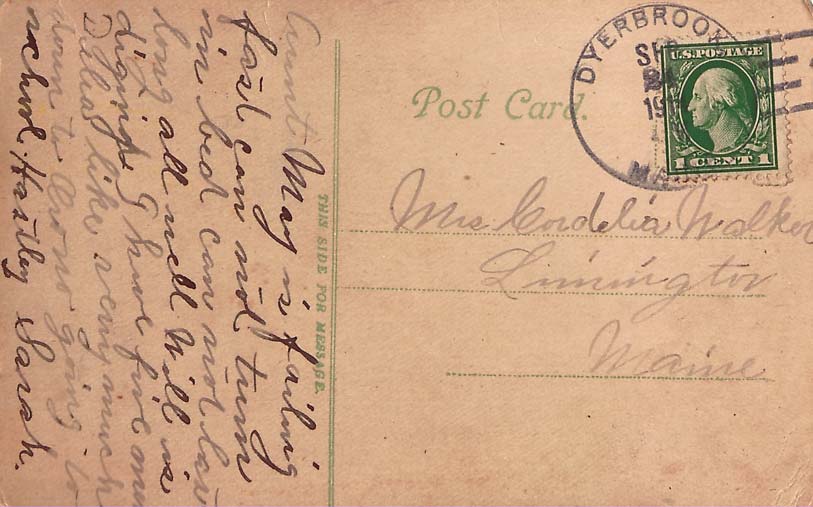 Aunt May is failing
fast can not turn
in bed can not
long all well Will is
diging I have five
like very much
down to going to
school. Sarah.
THIS SIDE FOR MESSAGE.
Post Card.
DYERBROOK
SEP
24
191
U.S. POSTAGE
1 CENT 1
Mrs Cordelia Walker
Limington
Maine